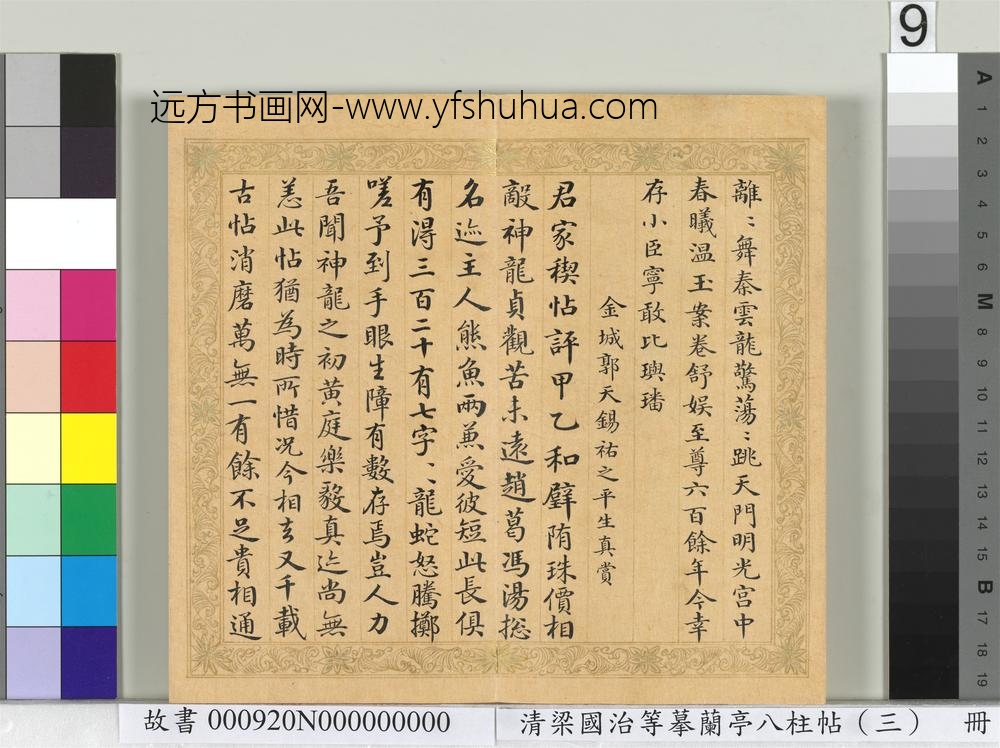 9
远方书画网-www.yfshuhua.com
離〻舞秦雲龍驚蕩〻跳天門明光宮中
春曦温玉案卷舒娱至尊六百餘年今幸
存小臣寧敢比璵璠
金城郭天錫祐之平生真賞
君家稧帖評甲乙和璧隋珠價相
敵神龍貞觀苦未遠趙葛馮湯揔
名迹主人熊魚兩兼愛彼短此長俱
有得三百二十有七字〻龍蛇怒騰擲
嗟予到手眼生障有數存焉豈人力
吾聞神龍之初黄庭樂毅真迹尚無
恙此帖猶為時所惜况今相去又千載
古帖消磨萬無一有餘不足貴相通
A
1
2
3
4
5
6
M
8
9
10
11
12
13
14
15
B
17
18
19
故書 000920N000000000
清梁國治等摹蘭亭八柱帖（三） 冊